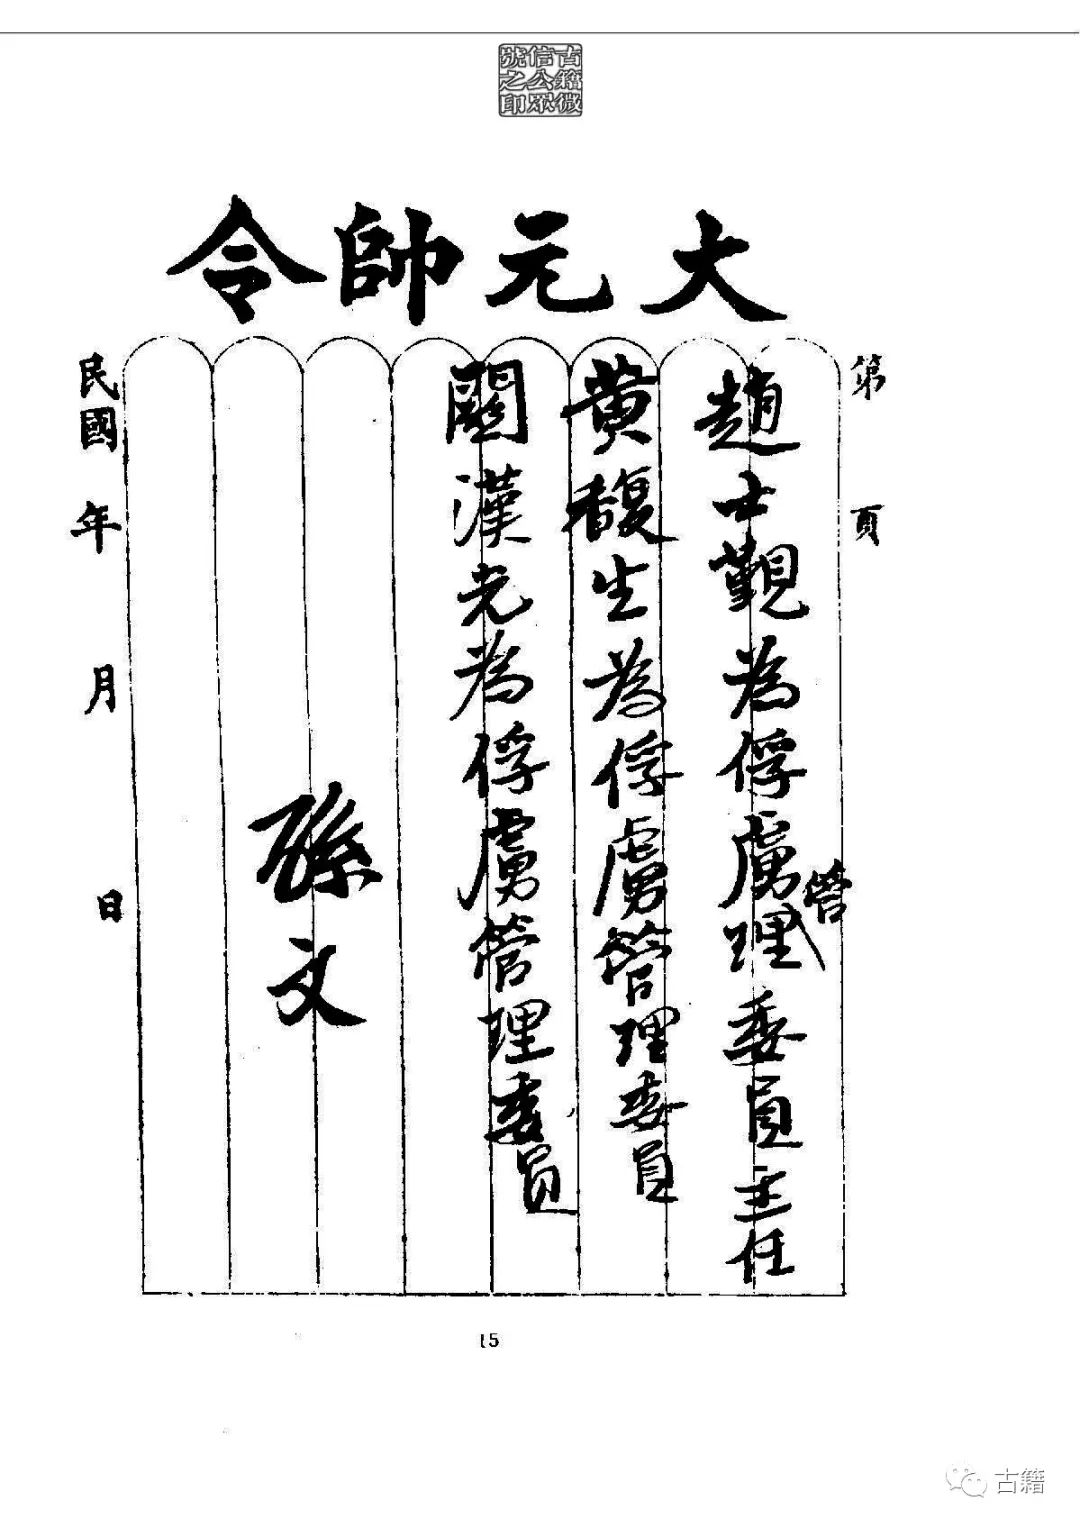 古籍微
信公眾
號之印
大元帥令
第 頁
趙士覲為俘虜管理委員主任
黃馥生為俘虜管理委員
關漢光為俘虜管理委員
孫文
民國 年 月 日
15
古籍